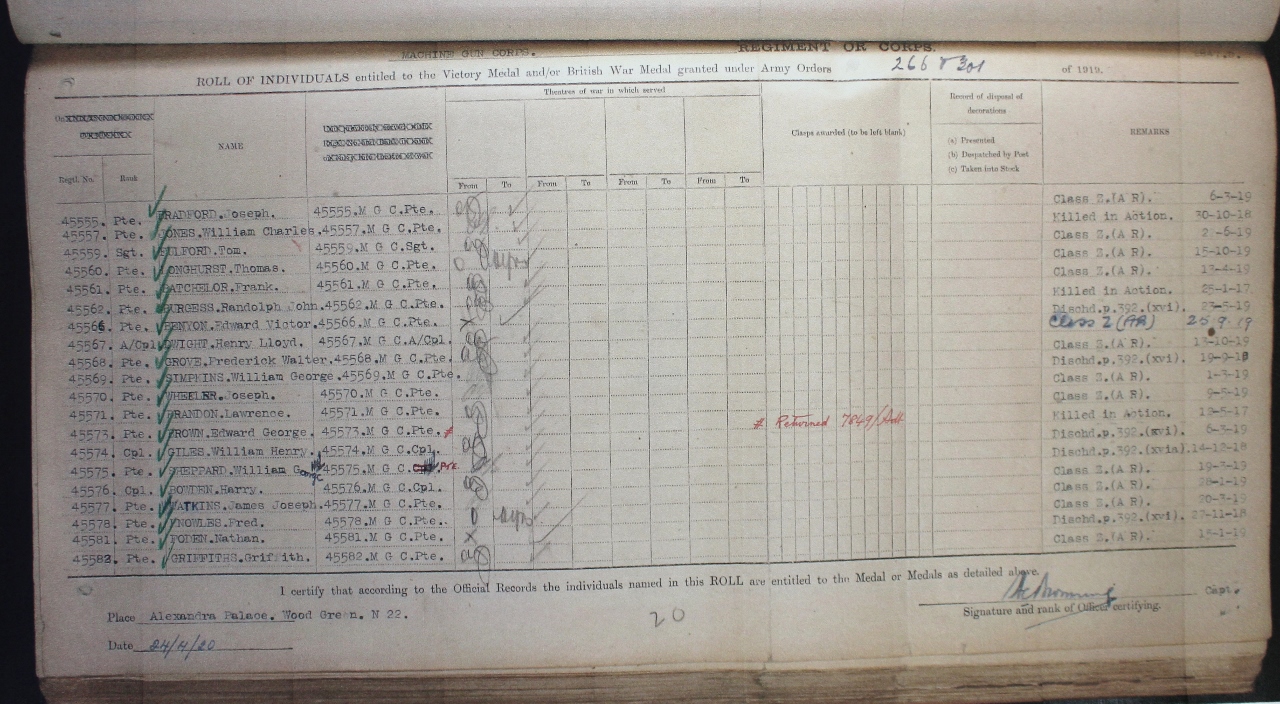 MACHINE GUN CORPS. REGIMENT OR CORPS.
ROLL OF INDIVIDUALS entitled to the Victory Medal and/or British War Medal granted under Army Orders 266 & 301 of 1919.
Theatres of war in which served
Record of disposal of decorations
NAME
Clasps awarded (to be left blank)
REMARKS
(a) Presented
(b) Despatched by Post
(c) Taken into Stock
Regtl. No. Rank From To From To From To From To
45555. Pte. BRADFORD.Joseph. 45555.M G C.Pte. Class Z.(A R). 6-3-19
45557. Pte. JONES.William Charles.45557.M G C.Pte. Killed in Action. 30-10-18
45559. Sgt. FULFORD.Tom. 45559.M G C.Sgt. Class Z.(A R). 2-6-19
45560. Pte. LONGHURST.Thomas. 45560.M G C.Pte. Class Z.(A R). 15-10-19
45561. Pte. BATCHELOR.Frank. 45561.M G C.Pte. Class Z.(A R). 13-4-19
45562. Pte. BURGESS.Randolph John.45562.M G C.Pte. Killed in Action. 25-1-17
45566. Pte. BENYON.Edward Victor.45566.M G C.Pte. Dischd.p.392.(xvi).
Class Z (AR) 25 9 19
45567. A/Cpl DWIGHT.Henry Lloyd. 45567.M G C.A/Cpl. Class Z.(A R). 13-10-19
45568. Pte. GROVE.Frederick Walter.45568.M G C.Pte. Dischd.p.392.(xvi).
45569. Pte. SIMPKINS.William George.45569.M G C.Pte. Class Z.(A R). 1-3-19
45570. Pte. WHEELER.Joseph. 45570.M G C.Pte. Class Z.(A R).
45571. Pte. BRANDON.Lawrence. 45571.M G C.Pte. Killed in Action. 12-5-17
45573. Pte. BROWN.Edward George. 45573.M G C.Pte. # # Returned 7849/Adt Dischd.p.392.(xvi). 6-3-19
45574. Cpl. GILES.William Henry. 45574.M G C.Cpl. Dischd.p.392.(xvia).14-12-18
45575. Pte. SHEPPARD.William George 45575.M G C. Pte. Class Z.(A R). 19-3-19
45576. Cpl. BOWDEN.Harry. 45576.M G C.Cpl. Class Z.(A R). 28-1-19
45577. Pte. WATKINS.James Joseph.45577.M G C.Pte. Class Z.(A R). 20-3-19
45578. Pte. KNOWLES.Fred. 45578.M G C.Pte. Dischd.p.392.(xvi). 27-11-18
45581. Pte. FODEN.Nathan. 45581.M G C.Pte. Class Z.(A R). 15-1-19
45582. Pte. GRIFFITHS.Griffith. 45582.M G C.Pte.
I certify that according to the Official Records the individuals named in this ROLL are entitled to the Medal or Medals as detailed above.
Capt.
Place Alexandra Palace. Wood Green. N 22. 20 Signature and rank of Officer certifying.
Date 24/4/20